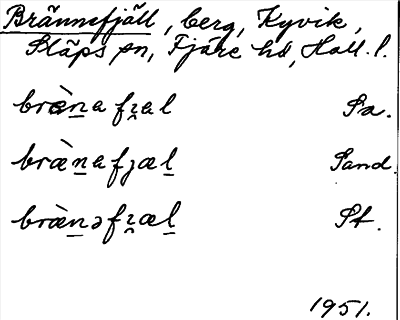 Brännefjäll, berg, Kyvik,
Släps sn, Fjäre hd, Hall. l.
bræ̀n̲a fʒ̨al Sa.
bræ̀n̲a fȷæl̲ Sand.
bræ̀n̲ə fʒ̨æl̲ St.
1951.